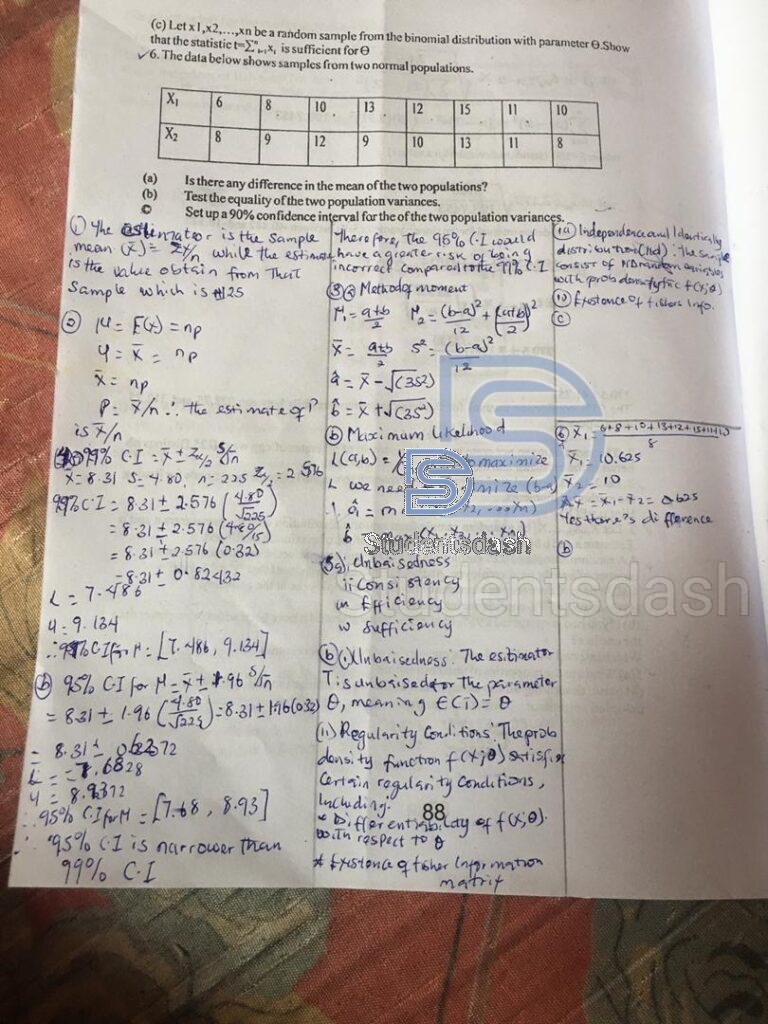 (c) Let x1,x2,...,xn be a random sample from the binomial distribution with parameter Θ.Show
that the statistic t=∑ⁿᵢ₌₁xᵢ is sufficient for Θ
✓6. The data below shows samples from two normal populations.
X₁ 6 8 10 13 12 15 11 10
X₂ 8 9 12 9 10 13 11 8
(a) Is there any difference in the mean of the two populations?
(b) Test the equality of the two population variances.
© Set up a 90% confidence interval for the of the two population variances.
① The estimator is the sample
mean (x̄) = Σx/n while the estimate
is the value obtain from that
Sample which is 25
② μ = E(x) = np
μ = x̄ = np
x̄ = np
P = x̄/n ∴ the estimate of P
is x̄/n
99% C.I = x̄ ± Zα/₂ S/√n
x̄ = 8.31 S = 4.80, n = 225 Z/₂ = 2.576
99% C.I = 8.31 ± 2.576 (4.80/√225)
= 8.31 ± 2.576 (4.80/15)
= 8.31 ± 2.576 (0.32)
= 8.31 ± 0.82432
L = 7.486
U = 9.134
∴ 99% C.I for μ = [7.486, 9.134]
ⓑ 95% C.I for μ = x̄ ± 1.96 S/√n
= 8.31 ± 1.96 (4.80/√225) = 8.31 ± 1.96(0.32)
= 8.31 ± 0.6272
L = 7.6828
U = 8.9372
∴ 95% C.I for μ = [7.68, 8.93]
∴ 95% C.I is narrower than
99% C.I
Therefore, the 95% C.I would
have a greater risk of being
incorrect compared to the 99% C.I
③ⓐ Method of moment
μ₁ = a+b/2 μ₂ = (b-a)²/12 + (a+b/2)²
x̄ = a+b/2 S² = (b-a)²/12
â = x̄ - √(3S²)
b̂ = x̄ + √(3S²)
ⓑ Maximum likelihood
L(a,b) = to maximize
L we need mize (b-a)
∴ â = m x₂, ...xn)
b̂ = (x₁ x₂, ..., xn)
5a i. Unbaisedness
ii Consistency
iii Efficiency
iv Sufficiency
ⓑ (i) Unbaisedness: The esitimator
T is unbaised for the parameter
θ, meaning E(T) = θ
(ii) Regularity Conditions: The prob
density function f(x;θ) satisfies
Certain regularity conditions,
Including:
* Differentiability of f(x;θ).
With respect to θ
* Existence of fisher Information
matrix
88
Independence and Identically
distribution (iid): The sample
consist of random variables
with prob density fxtn f(x;θ)
Existence of fishers Info.
ⓒ
⑥ x̄₁ = 6+8+10+13+12+15+11+10/8
x̄₁ = 10.625
x̄₂ = 10
x̄₁ - x̄₂ = 0.625
Yes there's difference
ⓑ
Studentsdash
studentsdash